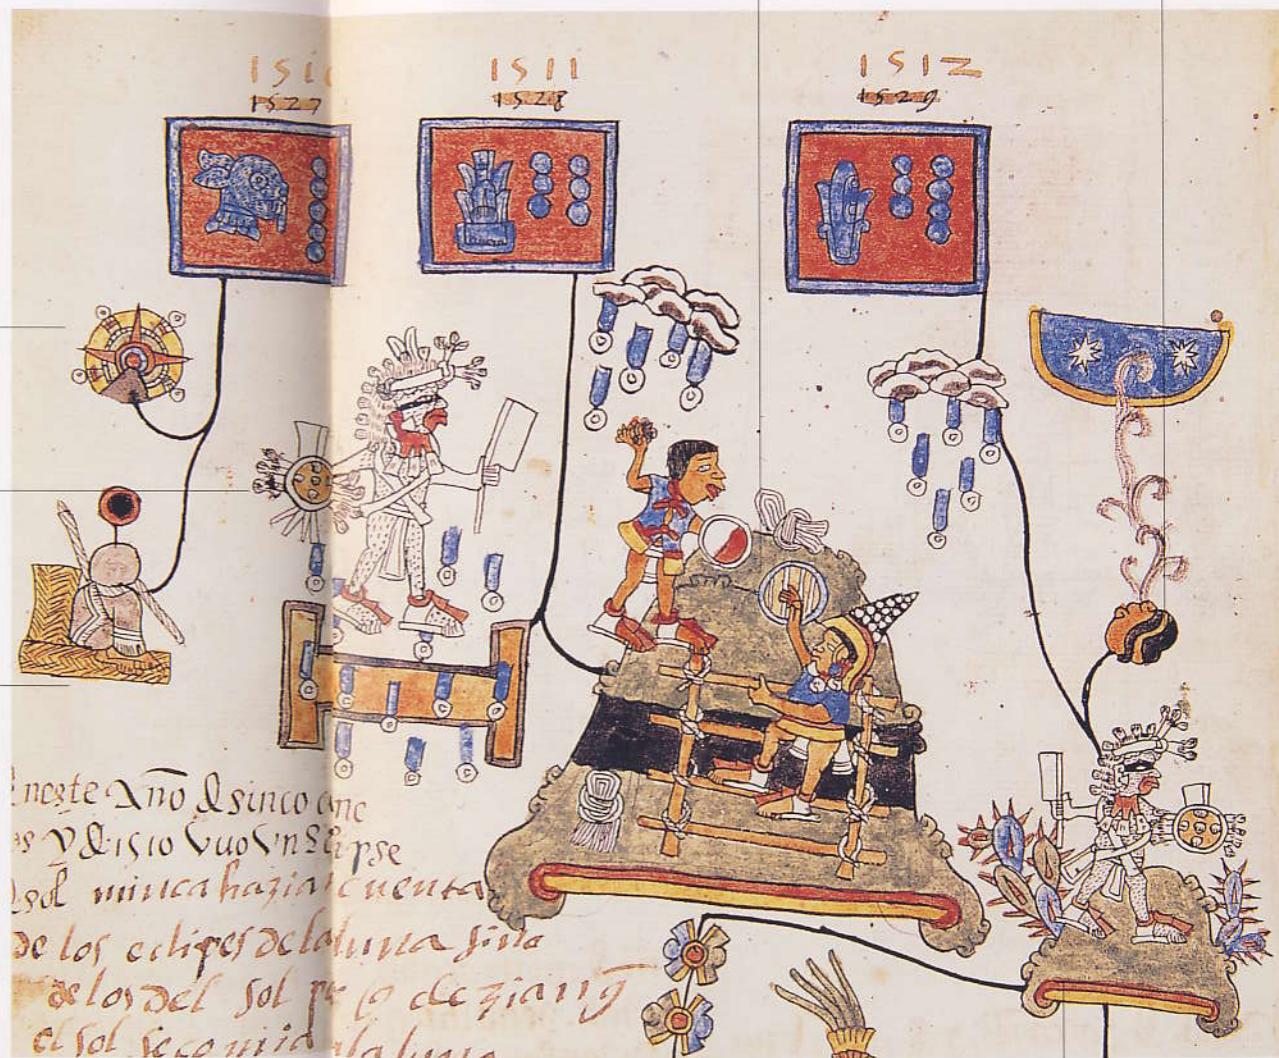 151
1527
1511
1528
1512
1529
neste Año de sinco
y de 1510 vuo vn eclipse
sol nunca hazian cuenta
de los eclipses de la luna sino
de los del sol
el sol se comia la luna